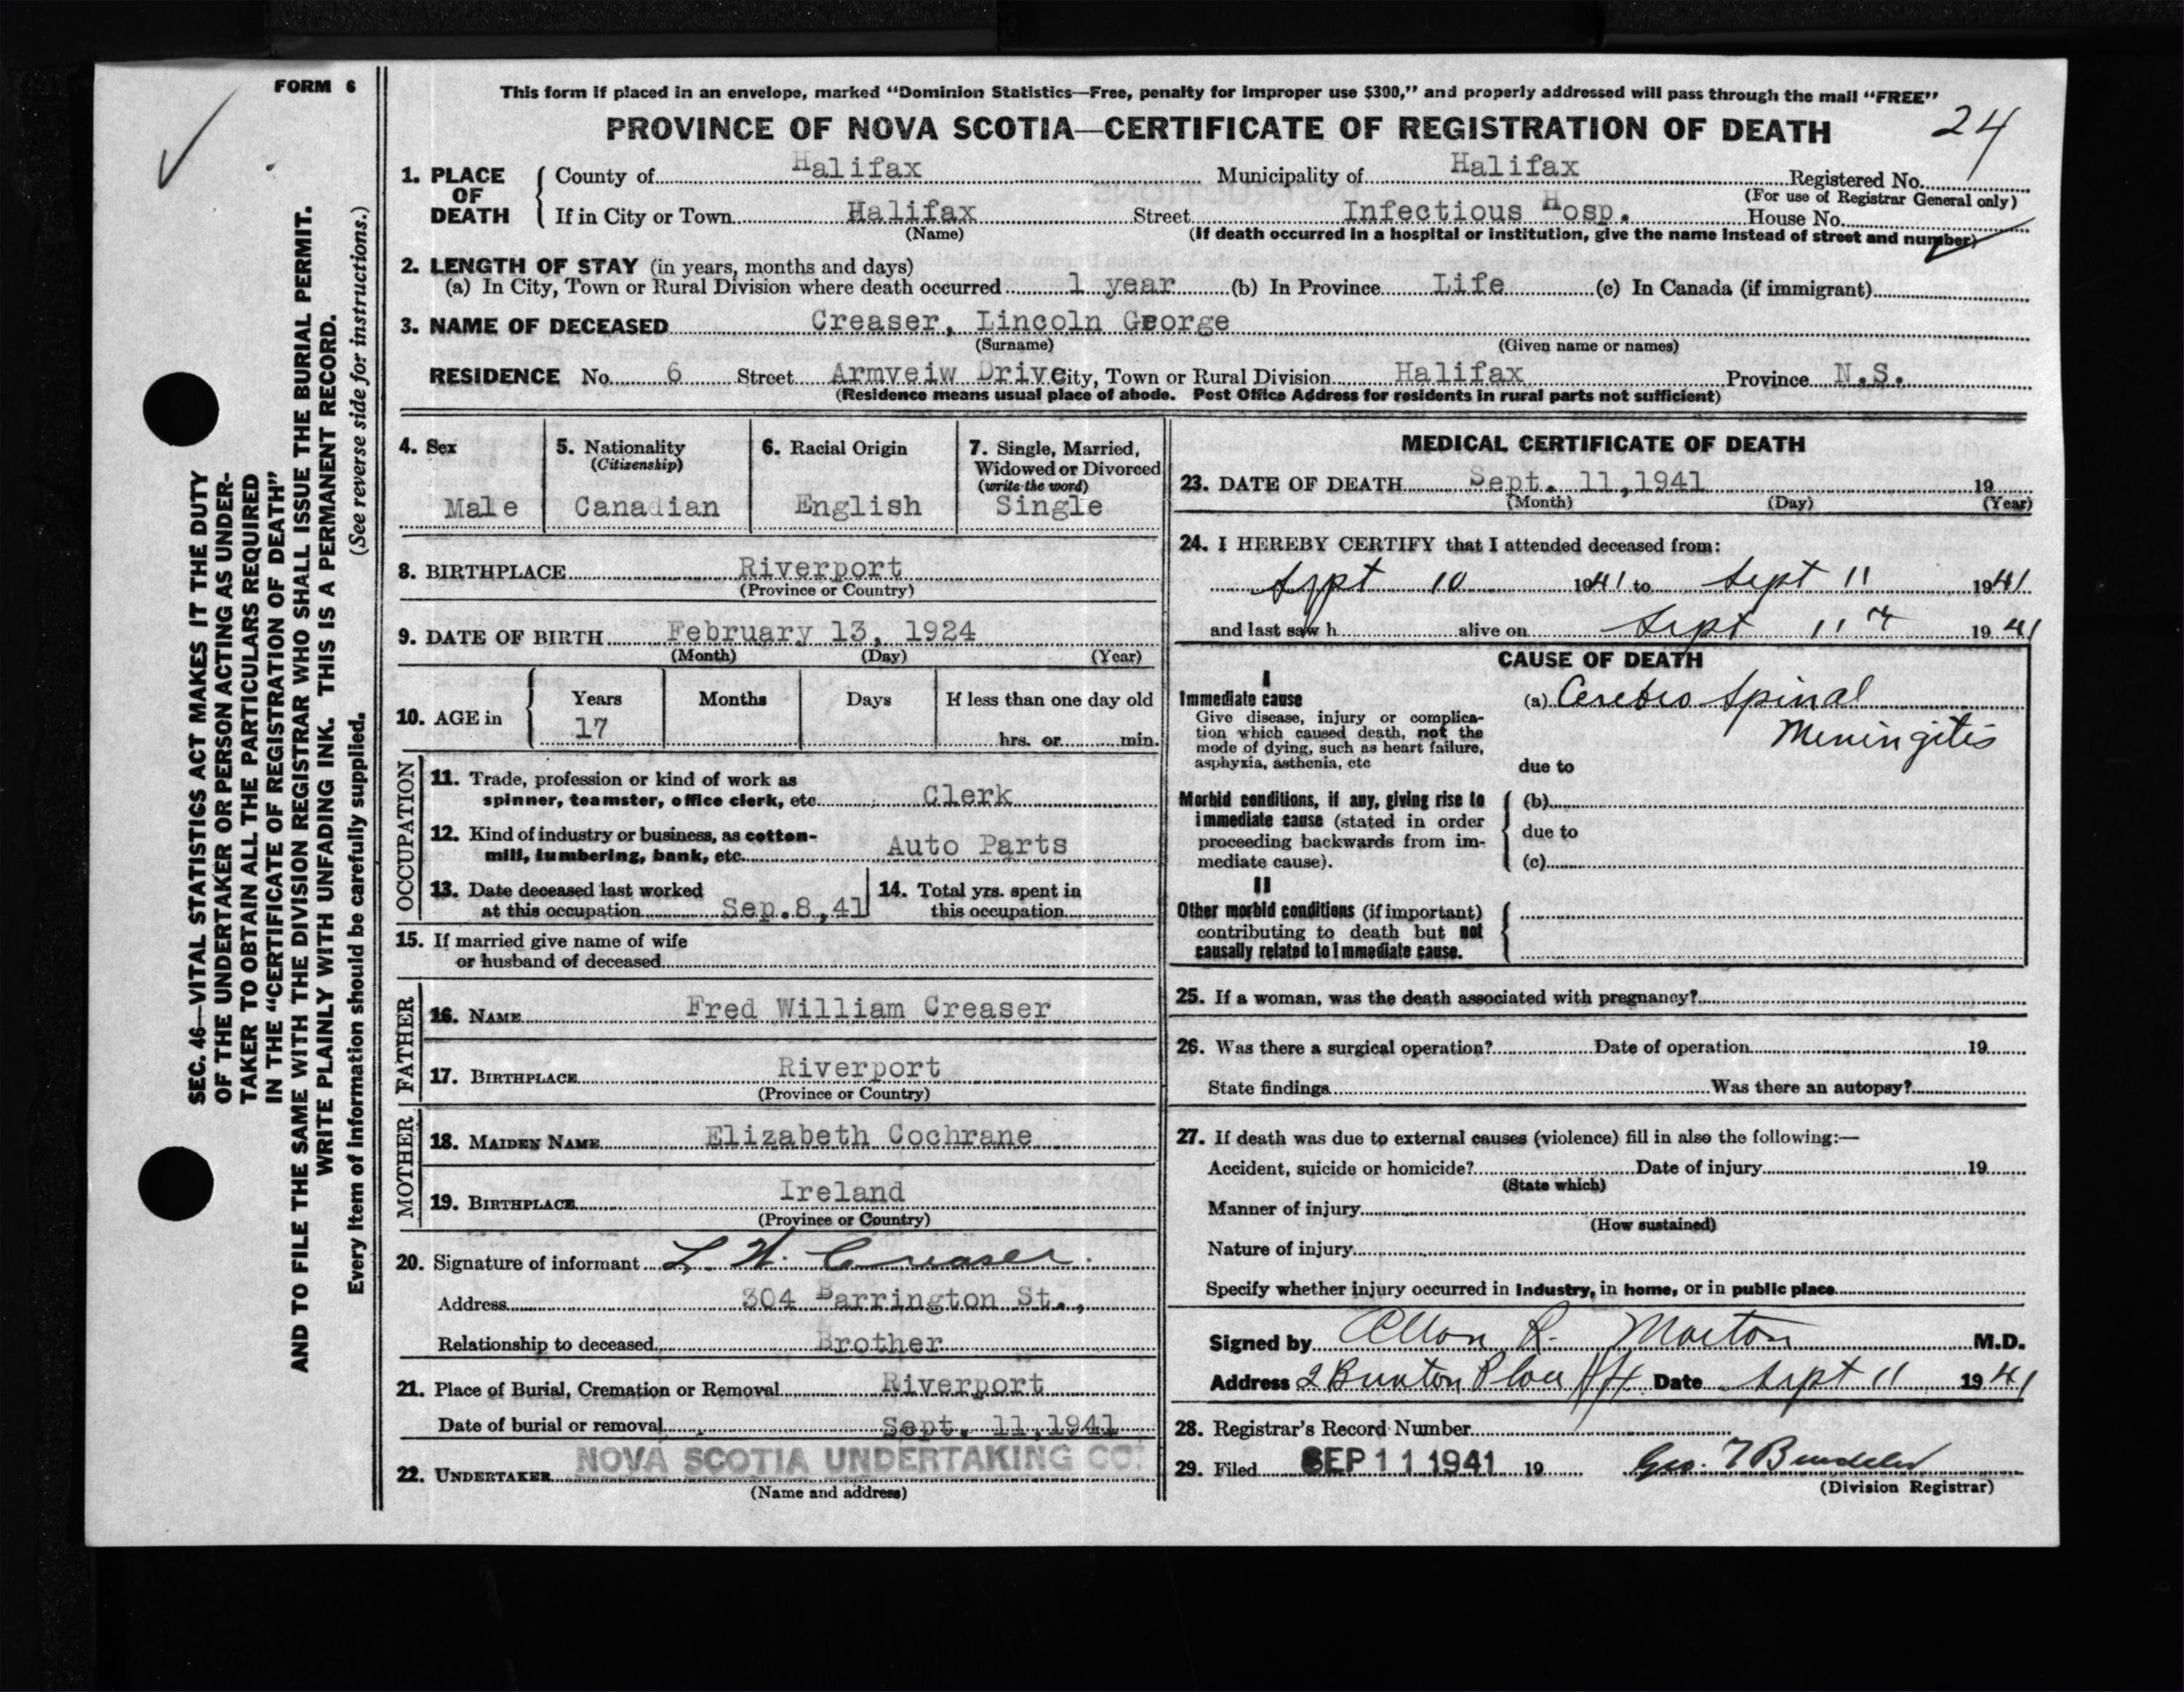 FORM 6
This form if placed in an envelope, marked “Dominion Statistics—Free, penalty for improper use $300,” and properly addressed will pass through the mail “FREE”
PROVINCE OF NOVA SCOTIA—CERTIFICATE OF REGISTRATION OF DEATH
24
1. PLACE OF DEATH
County of Halifax Municipality of Halifax Registered No.
(For use of Registrar General only)
If in City or Town Halifax Street Infectious Hosp. House No.
(Name) (If death occurred in a hospital or institution, give the name instead of street and number)
2. LENGTH OF STAY (in years, months and days)
(a) In City, Town or Rural Division where death occurred 1 year (b) In Province Life (c) In Canada (if immigrant)
3. NAME OF DECEASED Creaser, Lincoln George
(Surname) (Given name or names)
RESIDENCE No. 6 Street Armveiw Drive City, Town or Rural Division Halifax Province N.S.
(Residence means usual place of abode. Post Office Address for residents in rural parts not sufficient)
4. Sex
Male
5. Nationality
(Citizenship)
Canadian
6. Racial Origin
English
7. Single, Married,
Widowed or Divorced
(write the word)
Single
8. BIRTHPLACE Riverport
(Province or Country)
9. DATE OF BIRTH February 13, 1924
(Month) (Day) (Year)
10. AGE in
Years Months Days If less than one day old
17 hrs. or min.
OCCUPATION
11. Trade, profession or kind of work as
spinner, teamster, office clerk, etc. Clerk
12. Kind of industry or business, as cotton-
mill, lumbering, bank, etc. Auto Parts
13. Date deceased last worked
at this occupation Sep.8,41
14. Total yrs. spent in
this occupation
15. If married give name of wife
or husband of deceased
FATHER
16. NAME Fred William Creaser
17. BIRTHPLACE Riverport
(Province or Country)
MOTHER
18. MAIDEN NAME Elizabeth Cochrane
19. BIRTHPLACE Ireland
(Province or Country)
20. Signature of informant L. W. Creaser.
Address 304 Barrington St.,
Relationship to deceased Brother
21. Place of Burial, Cremation or Removal Riverport
Date of burial or removal Sept. 11,1941
22. UNDERTAKER NOVA SCOTIA UNDERTAKING CO.
(Name and address)
MEDICAL CERTIFICATE OF DEATH
23. DATE OF DEATH Sept. 11,1941 19
(Month) (Day) (Year)
24. I HEREBY CERTIFY that I attended deceased from:
Sept 10 1941 to Sept 11 1941
and last saw h alive on Sept 11 19 41
CAUSE OF DEATH
I
Immediate cause
Give disease, injury or complica-
tion which caused death, not the
mode of dying, such as heart failure,
asphyxia, asthenia, etc
(a) Cerebro Spinal
Meningitis
due to
Morbid conditions, if any, giving rise to
immediate cause (stated in order
proceeding backwards from im-
mediate cause).
(b)
due to
(c)
II
Other morbid conditions (if important)
contributing to death but not
causally related to immediate cause.
25. If a woman, was the death associated with pregnancy?
26. Was there a surgical operation? Date of operation 19
State findings Was there an autopsy?
27. If death was due to external causes (violence) fill in also the following:—
Accident, suicide or homicide? Date of injury 19
(State which)
Manner of injury
(How sustained)
Nature of injury
Specify whether injury occurred in industry, in home, or in public place
Signed by Allan R. Morton M.D.
Address 2 Hfx Date Sept 11 19 41
28. Registrar's Record Number
29. Filed SEP 11 1941 19 Geo.
(Division Registrar)
SEC. 46—VITAL STATISTICS ACT MAKES IT THE DUTY
OF THE UNDERTAKER OR PERSON ACTING AS UNDER-
TAKER TO OBTAIN ALL THE PARTICULARS REQUIRED
IN THE “CERTIFICATE OF REGISTRATION OF DEATH”
AND TO FILE THE SAME WITH THE DIVISION REGISTRAR WHO SHALL ISSUE THE BURIAL PERMIT.
WRITE PLAINLY WITH UNFADING INK. THIS IS A PERMANENT RECORD.
Every item of information should be carefully supplied. (See reverse side for instructions.)